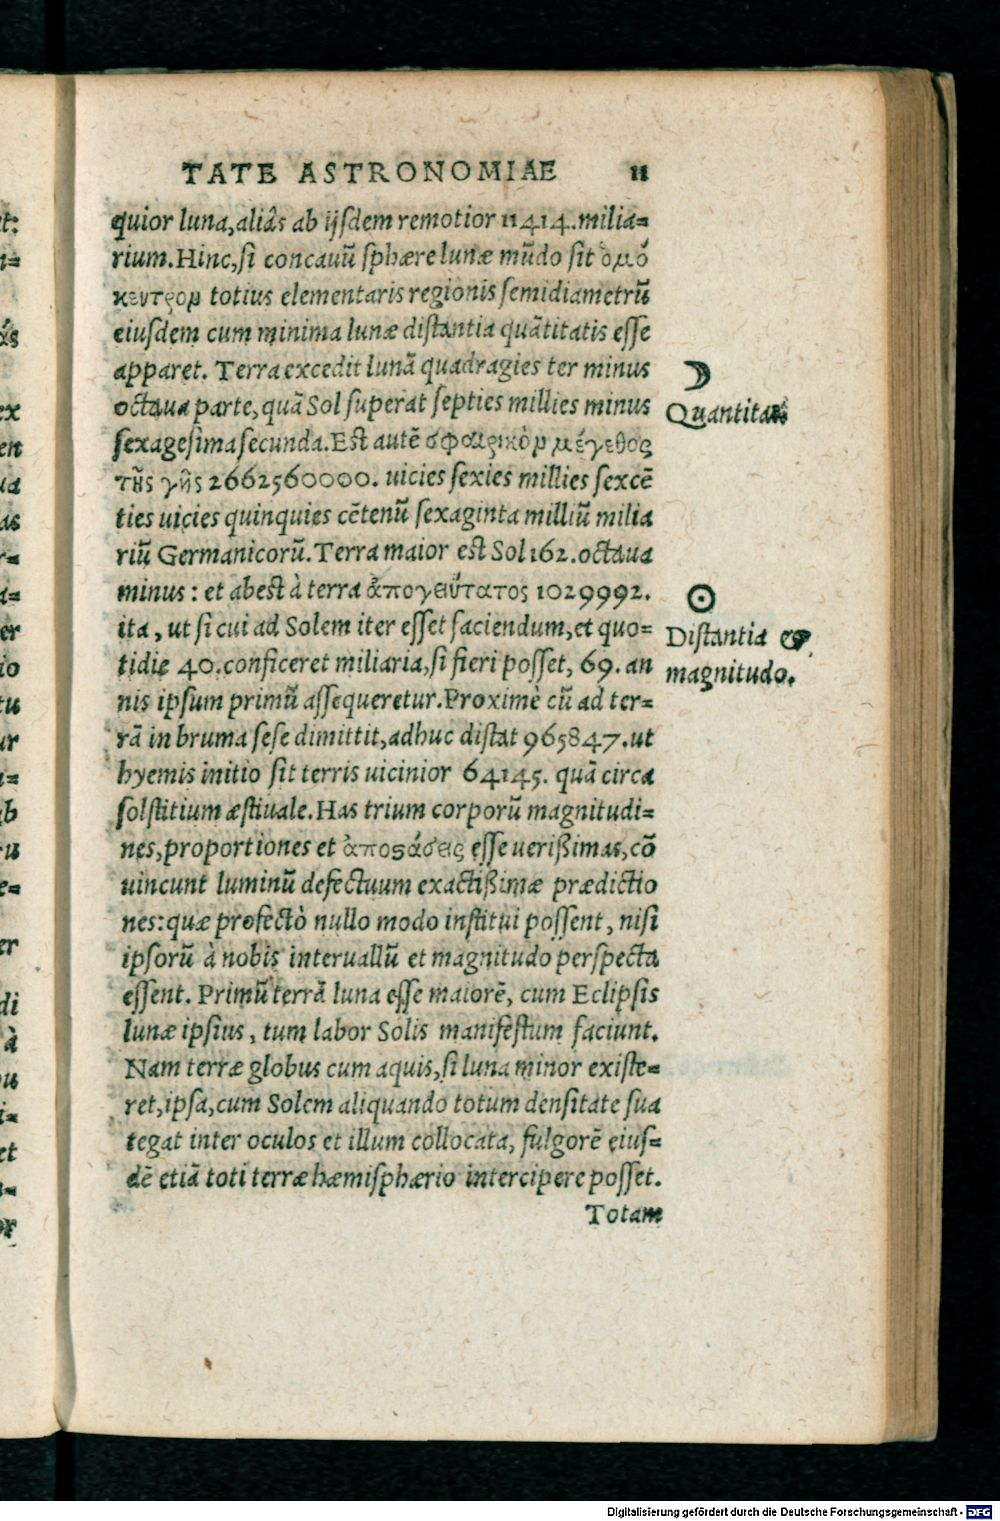 TATE ASTRONOMIAE 11
quior luna, aliâs ab ijsdem remotior 11414. milia=
rium. Hinc, si concauũ sphære lunæ mũdo sit ὁμό
κεντρομ totius elementaris regionis semidiametrũ
eiusdem cum minima lunæ distantia quãtitatis esse
apparet. Terra excedit lunã quadragies ter minus
octaua parte, quã Sol superat septies millies minus
sexagesima secunda. Est autẽ σφαιρικὸμ μέγεθος
τῆς γῆς 2662560000. uicies sexies millies sexcẽ
ties uicies quinquies cẽtenũ sexaginta milliũ milia
riũ Germanicorũ. Terra maior est Sol 162. octaua
minus: et abest à terra ἀπογειότατος 1029992.
ita, ut si cui ad Solem iter esset faciendum, et quo=
tidie 40. conficeret miliaria, si fieri posset, 69. an
nis ipsum primũ assequeretur. Proximè cũ ad ter=
rã in bruma sese dimittit, adhuc distat 965847. ut
hyemis initio sit terris uicinior 64145. quã circa
solstitium æstiuale. Has trium corporũ magnitudi=
nes, proportiones et ἀποστάσεις esse uerißimas, cõ
uincunt luminũ defectuum exactißimæ prædictio
nes: quæ profectò nullo modo institui possent, nisi
ipsorũ à nobis interuallũ et magnitudo perspecta
essent. Primũ terrã luna esse maiorẽ, cum Eclipsis
lunæ ipsius, tum labor Solis manifestum faciunt.
Nam terræ globus cum aquis, si luna minor existe=
ret, ipsa, cum Solem aliquando totum densitate sua
tegat inter oculos et illum collocata, fulgorẽ eius=
dẽ etiã toti terræ hæmisphærio intercipere posset.
Totam
☽
Quantitas
☉
Distantia &
magnitudo.
Digitalisierung gefördert durch die Deutsche Forschungsgemeinschaft - DFG